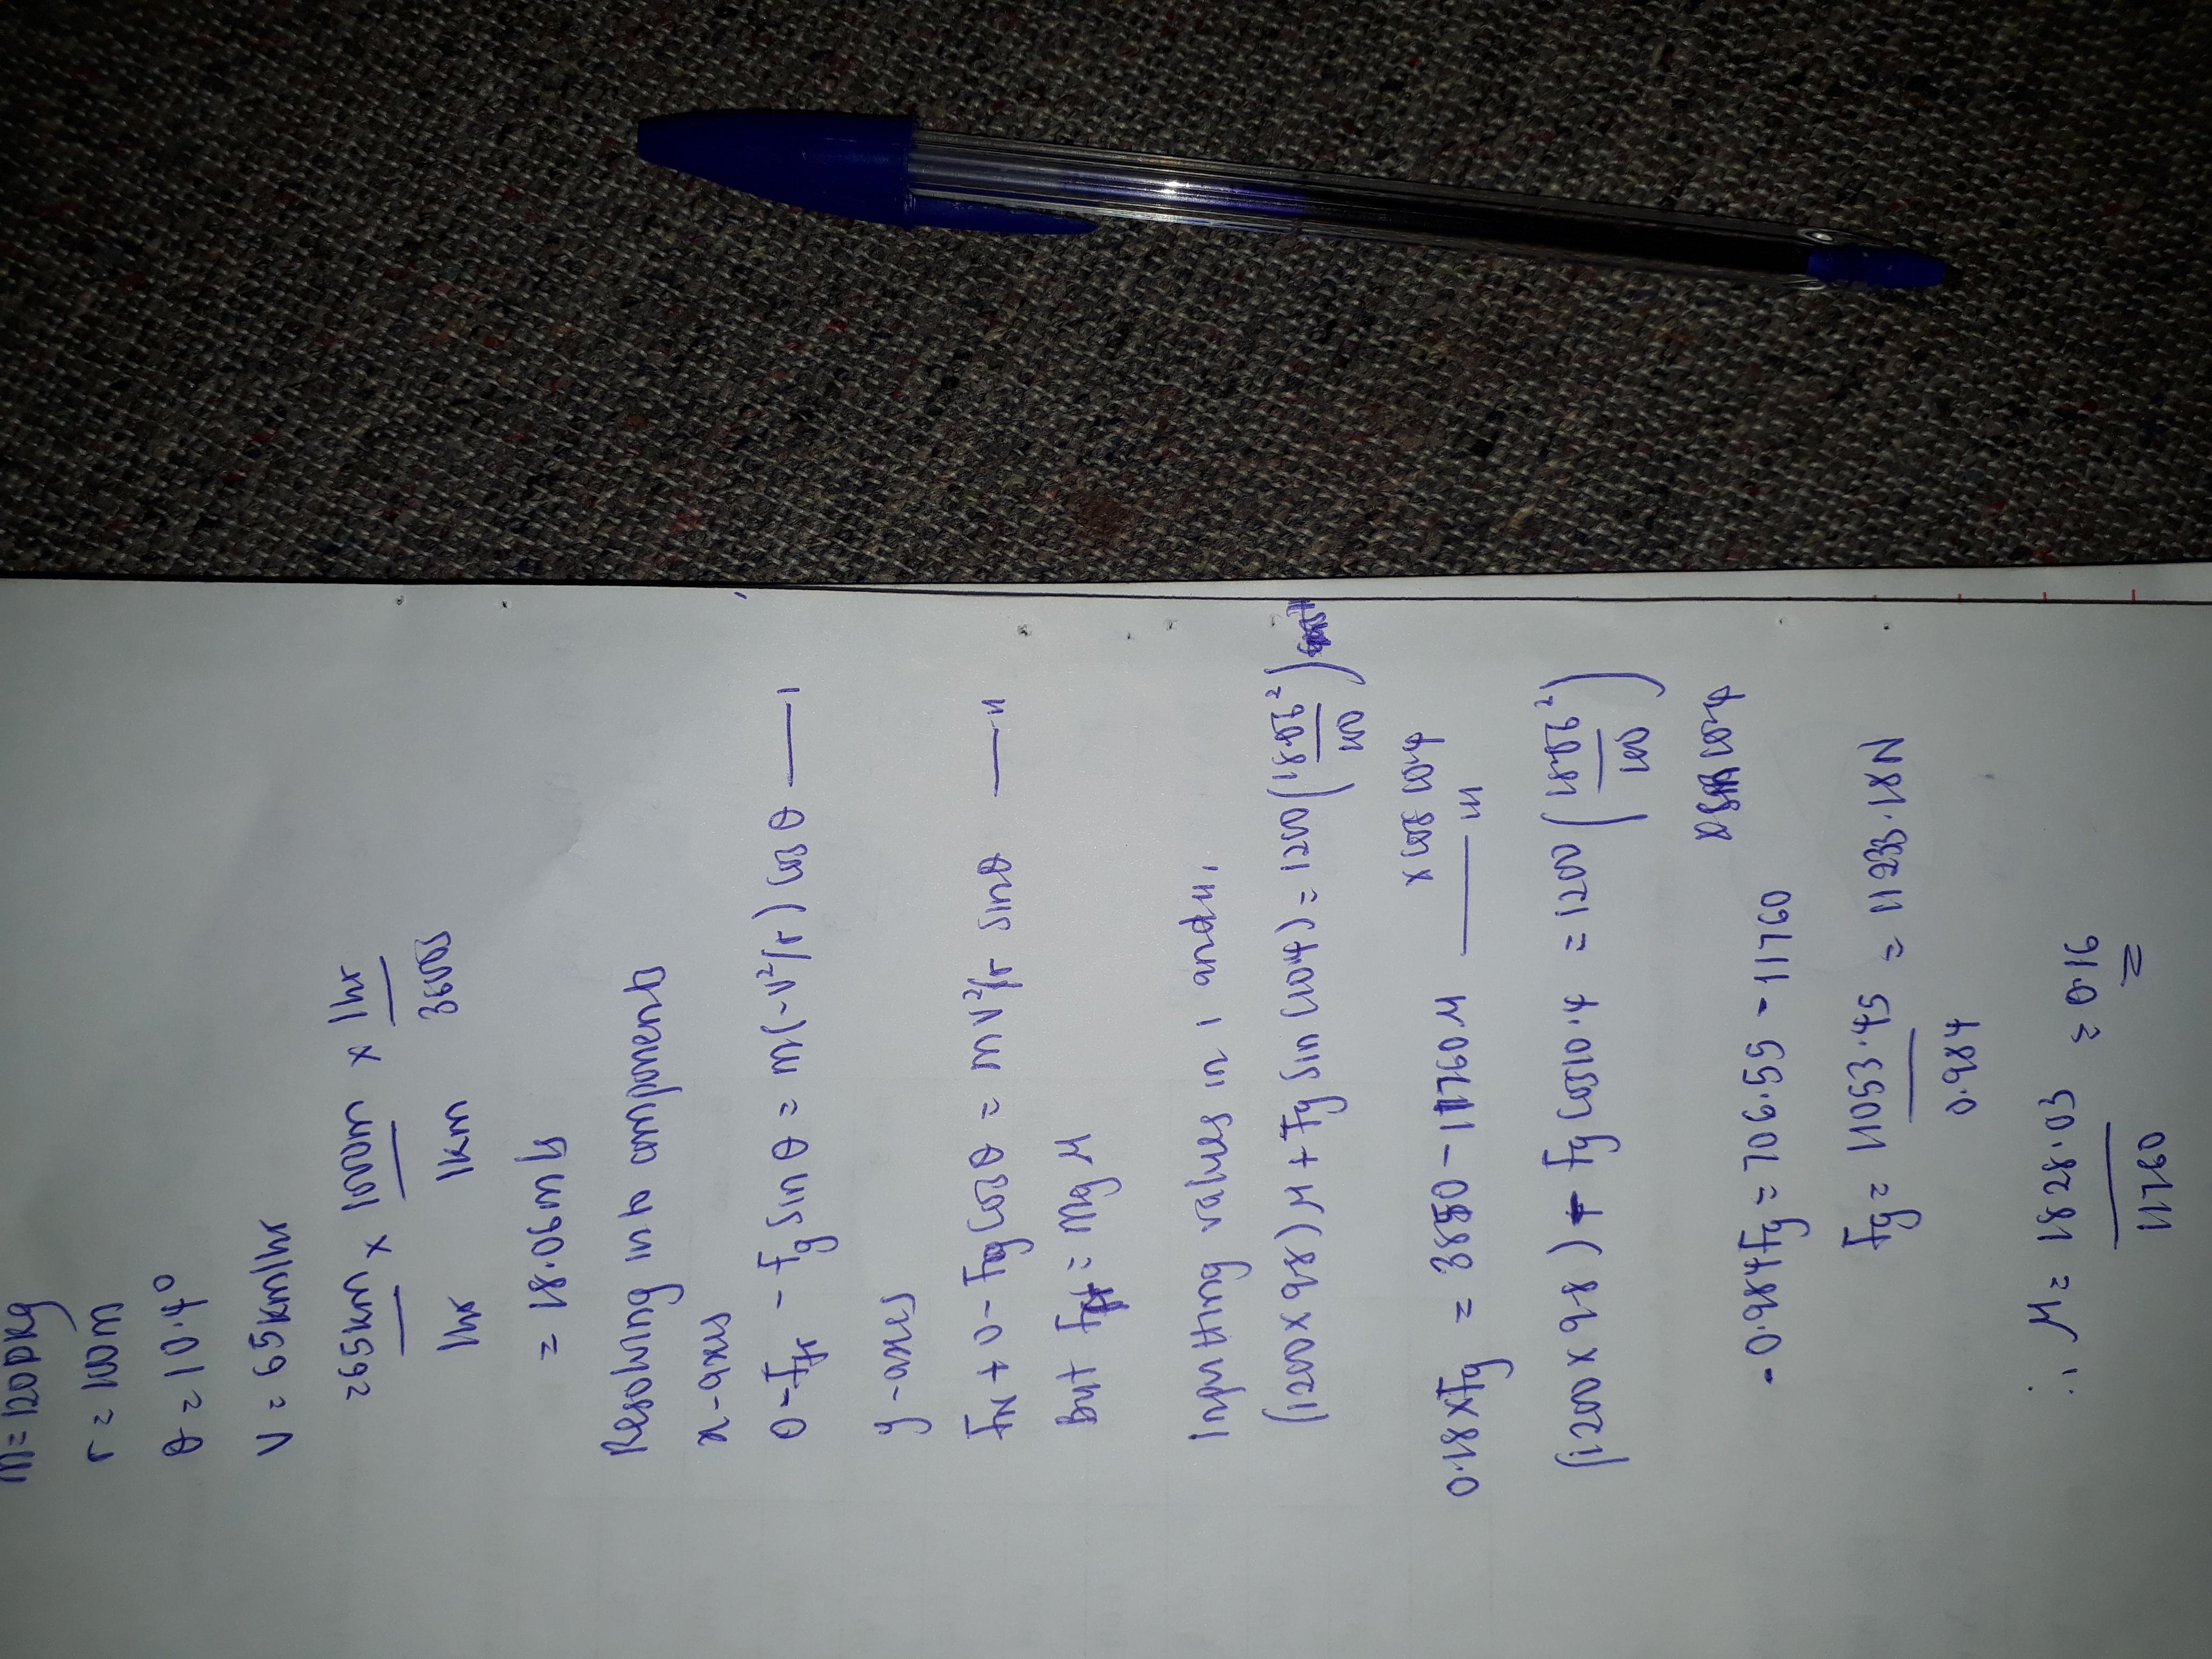 m = 1200kg
r = 100m
θ = 10.4°
V = 65km/hr
= 65km/1hr x 1000m/1km x 1hr/3600s
= 18.06m/s
Resolving into components
x-axes
0 - Ffr - Fg sin θ = m(-v²/r) cos θ —— 1
y-axes
FN + 0 - Fg cos θ = mv²/r sin θ —— 11
But Ffr = mg μ
Inputting values in 1 and 11,
(1200 x 9.8) μ + Fg sin (10.4) = 1200 (18.06²/100)
x cos 10.4
0.18 x Fg = 3850 - 11760 μ —— 111
(1200 x 9.8) - Fg cos 10.4 = 1200 (18.06²/100)
x sin 10.4
- 0.984 Fg = 706.55 - 11760
Fg = 11053.45/0.984 = 11233.18N
∴ μ = 1828.03/11760 = 0.16